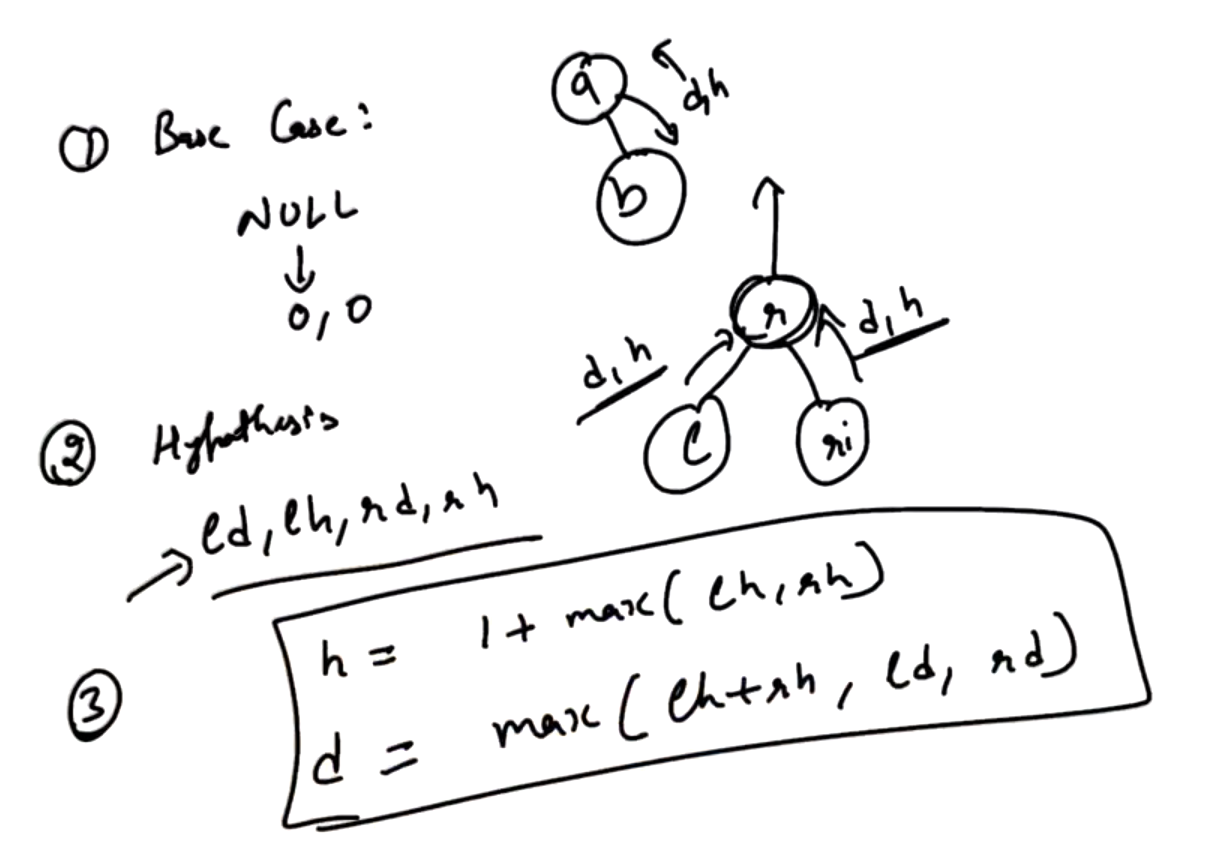 ① Base Case:
NULL
↓
0, 0
a
d,h
b
r
d, h
d, h
l
ri
② Hypothesis
→ ld, lh, rd, rh
③
h = 1 + max( lh, rh)
d = max( lh+rh , ld, rd)